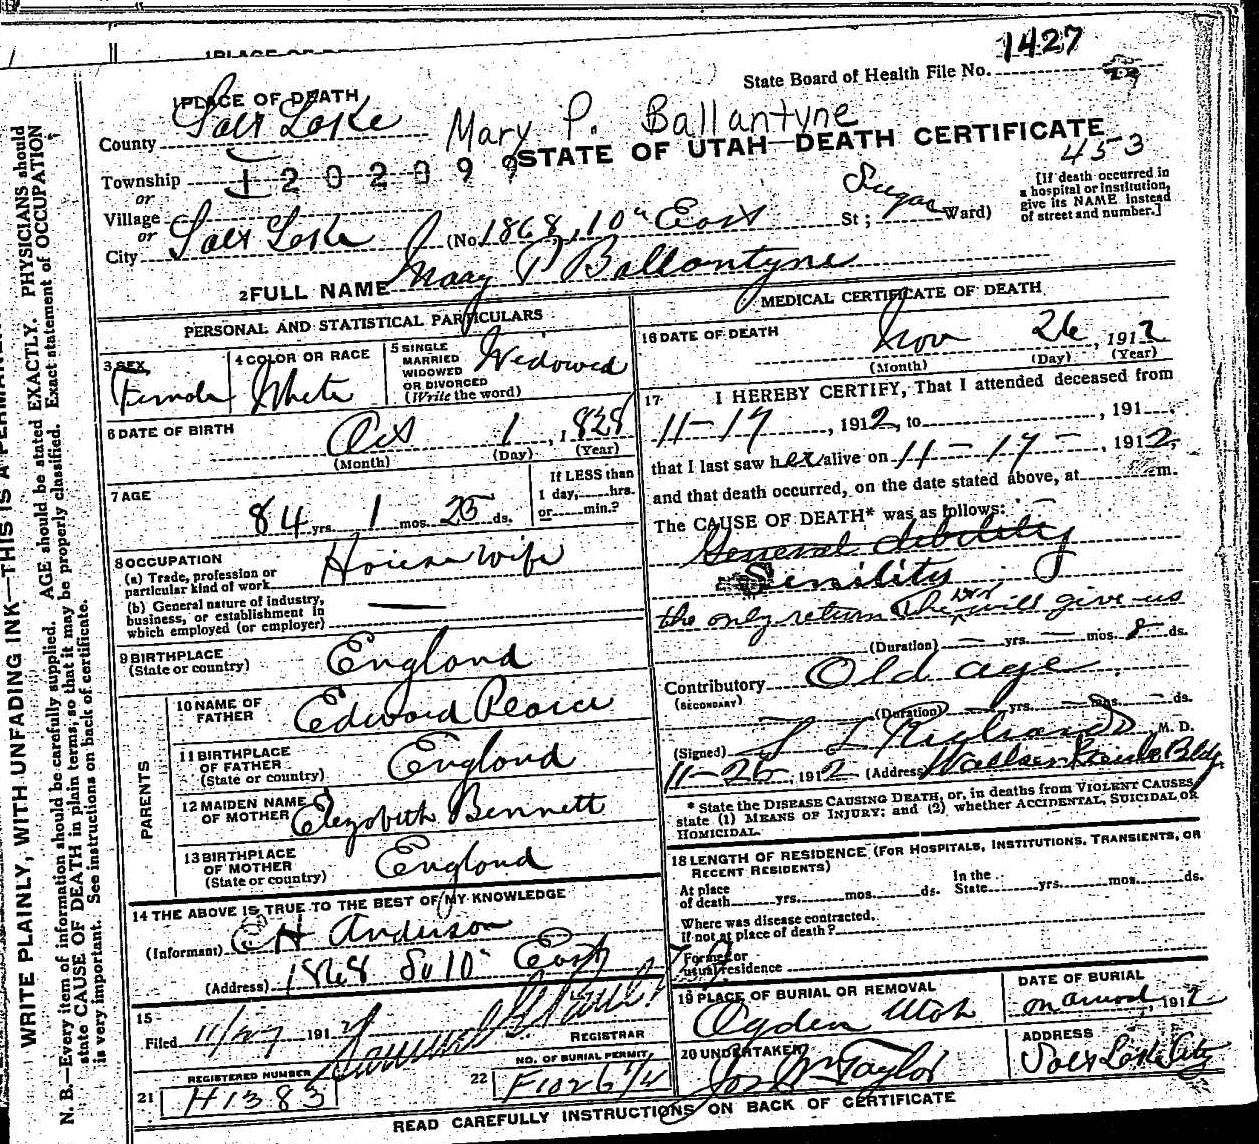 1427
State Board of Health File No.
1 PLACE OF DEATH
County Salt Lake
Mary P. Ballantyne
STATE OF UTAH—DEATH CERTIFICATE
453
Township 1202099
or
Village
or
City Salt Lake (No. 1868, 10" East St; Sugar Ward)
[If death occurred in
a hospital or institution,
give its NAME instead
of street and number.]
2 FULL NAME Mary P Ballantyne
PERSONAL AND STATISTICAL PARTICULARS
3 SEX
Female
4 COLOR OR RACE
White
5 SINGLE
MARRIED
WIDOWED
OR DIVORCED
(Write the word)
Widowed
6 DATE OF BIRTH
Oct 1, 1828
(Month) (Day) (Year)
7 AGE
84 yrs. 1 mos. 25 ds.
If LESS than
1 day, hrs.
or min.?
8 OCCUPATION
(a) Trade, profession or
particular kind of work
Housewife
(b) General nature of industry,
business, or establishment in
which employed (or employer)
9 BIRTHPLACE
(State or country)
England
PARENTS
10 NAME OF
FATHER
Edward Pearce
11 BIRTHPLACE
OF FATHER
(State or country)
England
12 MAIDEN NAME
OF MOTHER
Elizabeth Bennett
13 BIRTHPLACE
OF MOTHER
(State or country)
England
14 THE ABOVE IS TRUE TO THE BEST OF MY KNOWLEDGE
(Informant) C H Anderson
(Address) 1868 So 10" East
15
Filed 11/27 1912
REGISTRAR
REGISTERED NUMBER
21 H1383
NO. OF BURIAL PERMIT
22
MEDICAL CERTIFICATE OF DEATH
16 DATE OF DEATH
Nov 26, 1912
(Month) (Day) (Year)
17 I HEREBY CERTIFY, That I attended deceased from
11-17, 1912, to , 191
that I last saw her alive on 11-17-, 1912,
and that death occurred, on the date stated above, at m.
The CAUSE OF DEATH* was as follows:
General debility
Senility
the only return the will give us
(Duration) — yrs. — mos. 8 ds.
Contributory Old age
(SECONDARY)
(Duration) — yrs. — mos. — ds.
(Signed) Richards, M. D.
11-26, 1912 (Address) Bldg.
* State the DISEASE CAUSING DEATH, or, in deaths from VIOLENT CAUSES,
state (1) MEANS OF INJURY; and (2) whether ACCIDENTAL, SUICIDAL OR
HOMICIDAL.
18 LENGTH OF RESIDENCE (FOR HOSPITALS, INSTITUTIONS, TRANSIENTS, OR
RECENT RESIDENTS)
At place
of death yrs. mos. ds.
In the
State yrs. mos. ds.
Where was disease contracted,
if not at place of death?
Former or
usual residence
19 PLACE OF BURIAL OR REMOVAL
Ogden Utah
DATE OF BURIAL
1912
20 UNDERTAKER
Jos Wm Taylor
ADDRESS
Salt Lake City
READ CAREFULLY INSTRUCTIONS ON BACK OF CERTIFICATE
WRITE PLAINLY, WITH UNFADING INK—THIS IS A
N. B.—Every item of information should be carefully supplied. AGE should be stated EXACTLY. PHYSICIANS should
state CAUSE OF DEATH in plain terms, so that it may be properly classified. Exact statement of OCCUPATION
is very important. See instructions on back of certificate.